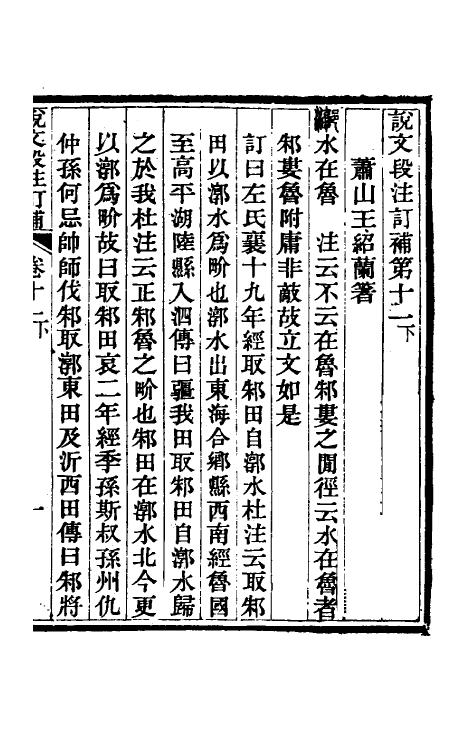 說文段注訂補第十一下
蕭山王紹蘭著
水在魯　注云不云在魯邾婁之閒徑云水在魯者
邾婁魯附庸非敵故立文如是
訂曰左氏襄十九年經取邾田自漷水杜注云取邾
田以漷水爲畍也漷水出東海合鄉縣西南經魯國
至高平湖陸縣入泗傳曰疆我田取邾田自漷水歸
之於我杜注云正邾魯之畍也邾田在漷水北今更
以漷爲畍故曰取邾田哀二年經季孫斯叔孫州仇
仲孫何忌帥師伐邾取漷東田及沂西田傳曰邾將
說文段注訂補　卷十一下　一